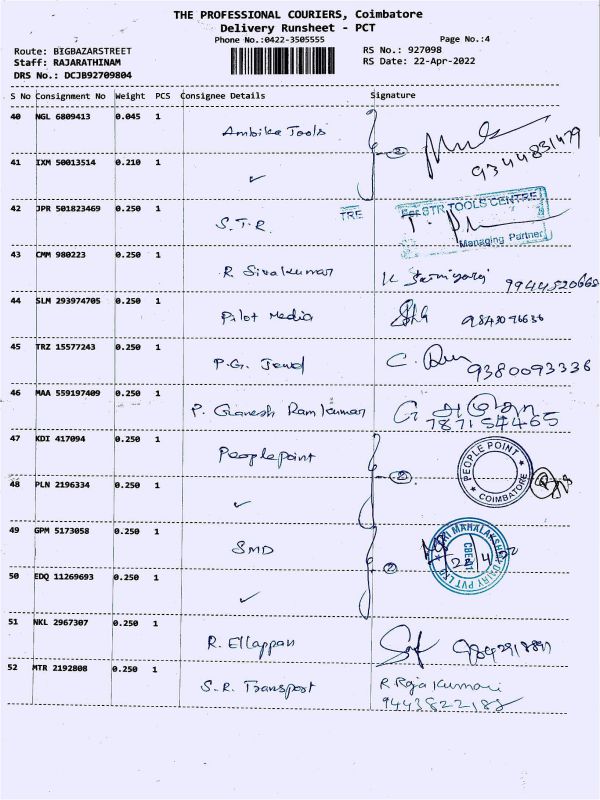 THE PROFESSIONAL COURIERS, Coimbatore
Delivery Runsheet - PCT
Phone No.:0422-3505555 Page No.:4
Route: BIGBAZARSTREET RS No.: 927098
Staff: RAJARATHINAM RS Date: 22-Apr-2022
DRS No.: DCJB92709804
S No Consignment No Weight PCS Consignee Details Signature
40 NGL 6809413 0.045 1 Ambika Tools
2
9344831479
41 IXM 50013514 0.210 1 ✓
42 JPR 501823469 0.250 1 S.T.R.
TRE
For STR TOOLS CENTRE
Managing Partner
43 CMM 980223 0.250 1 R. Sivakumar 9944520668
44 SLM 293974705 0.250 1 Pilot Media 9843096636
45 TRZ 15577243 0.250 1 P.G. 9380093336
46 MAA 559197409 0.250 1 P. Ganesh Ram kumar
787154465
47 KDI 417094 0.250 1 Peoplepoint
2
PEOPLE POINT
COIMBATORE
48 PLN 2196334 0.250 1 ✓
49 GPM 5173058 0.250 1 SMD
2
SRI MAHALAKSHMI DAIRY PVT LTD
CBE
22/4/22
50 EDQ 11269693 0.250 1 ✓
51 NKL 2967307 0.250 1 R. Ellappan
52 MTR 2192808 0.250 1 S.R. Transport R Raja Kumari
9443822188